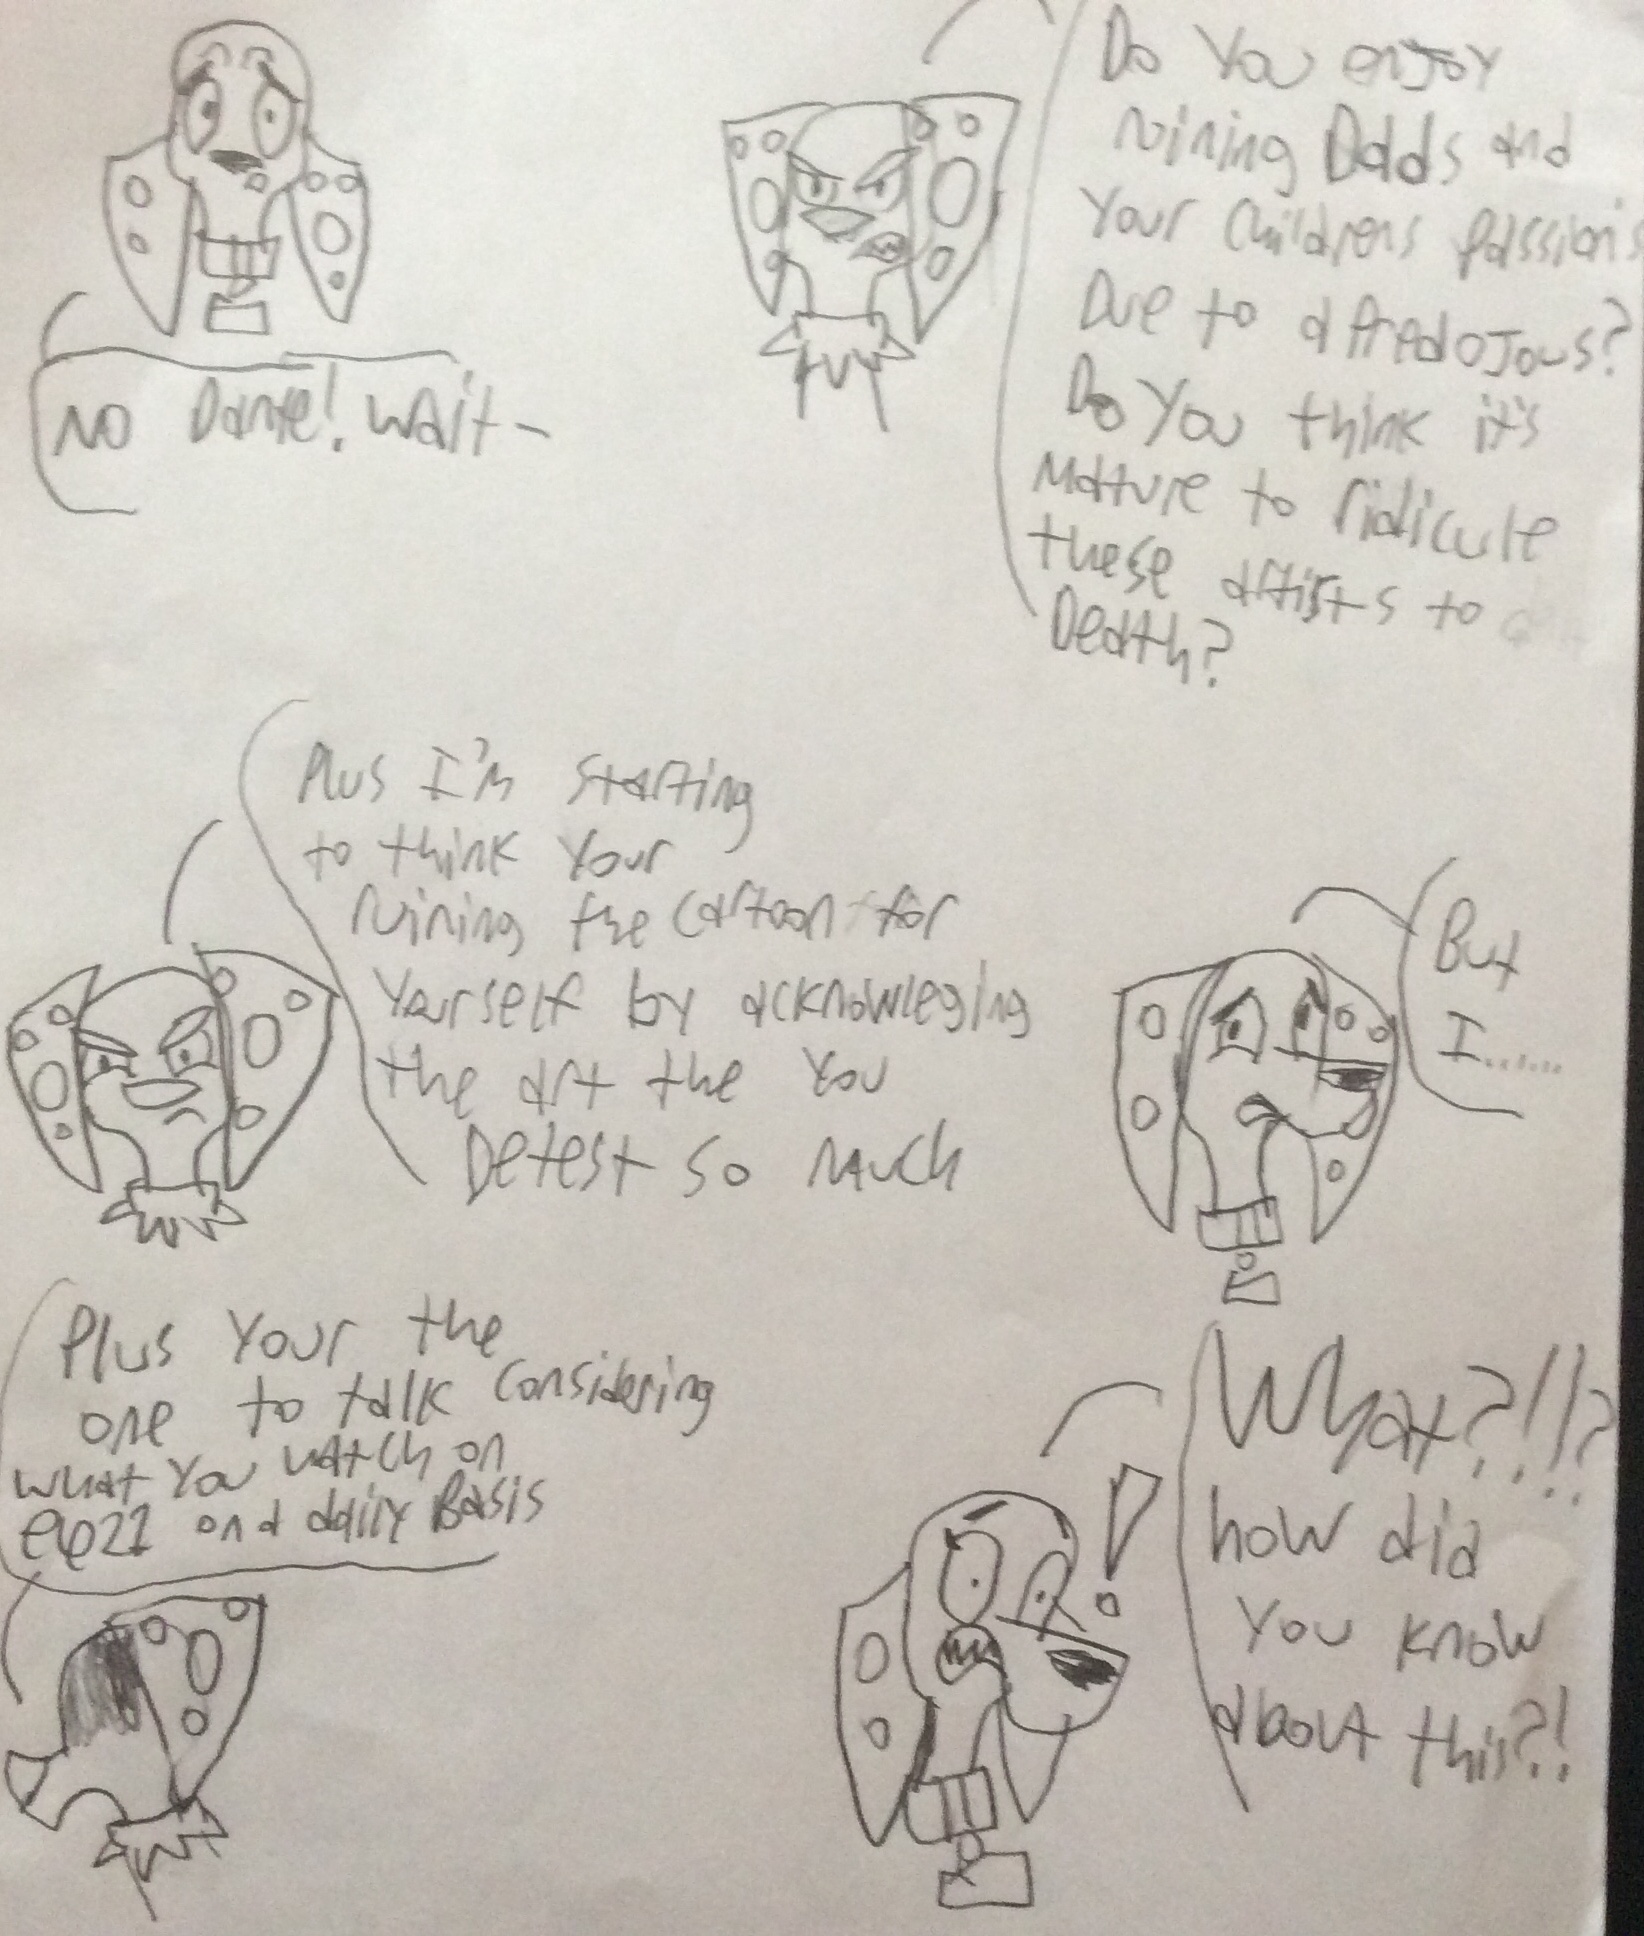 No Dante! Wait-
Do You enjoy
ruining Dads and
Your Childrens Passion's
Due to a
Do You think it's
Mature to ridicule
these artists to
Death?
Plus I'm starting
to think Your
ruining the cartoon for
Yourself by acknowleging
the art the You
Detest so much
But
I.......
Plus Your the
one to talk considering
what You watch on
e621 on a daily Basis
What?!!?
how did
You know
about this?!